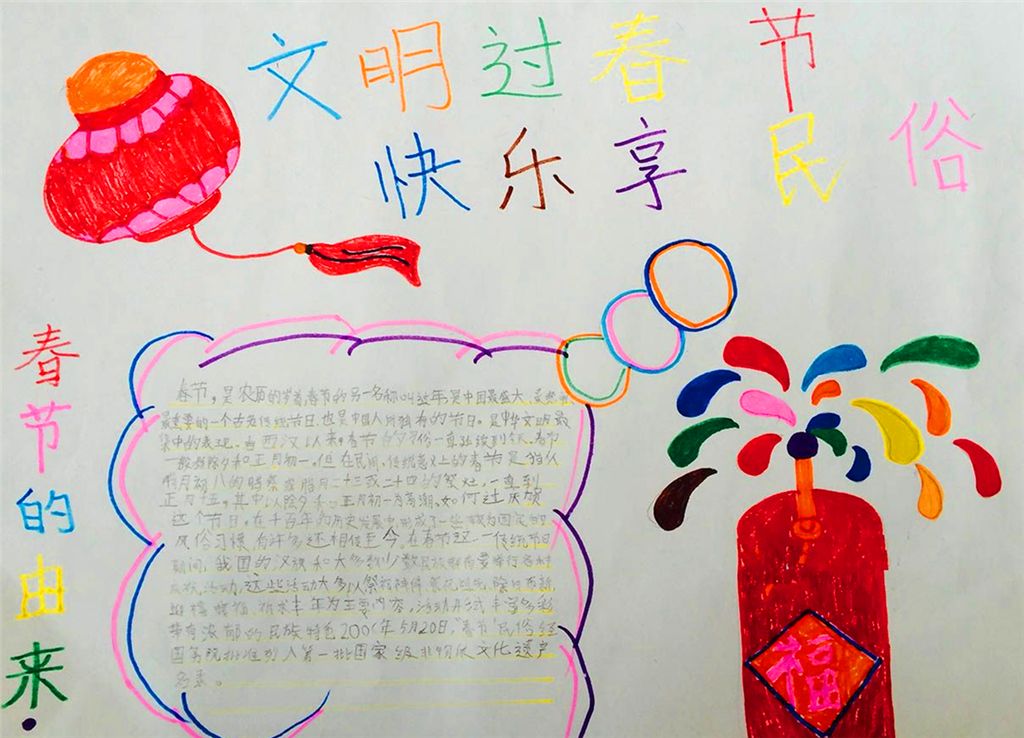 文明过春节
快乐享民俗
春节的由来
春节,是农历的岁首春节的另一名称叫过年是中国最盛大、最热闹
最重要的一个古老传统节日.也是中国人所独有的节日。是中华文明最
集中的表现.自西汉以来春节的习俗一直延续到今天.春节
一般指除夕和正月初一.但在民间,传统意义上的春节是指从
腊月初八的腊祭或腊月二十三或二十四的祭灶,一直到
正月十五,其中以除夕和正月初一为高潮.如何过庆贺
这个节日,在千百年的历史发展中,形成了一些较为固定的
风俗习惯,有许多还相传至今.在春节这一传统节日
期间,我国的汉族和大多数少数民族都有要举行各种
庆祝活动,这些活动大多以祭祀神佛.祭奠祖先.除旧布新
迎禧接福.祈求丰年为主要内容,活动形式丰富多彩
带有浓郁的民族特色200(年5月20日,"春节"民俗经
国务院批准列入第一批国家级非物质文化遗产
名录。
福